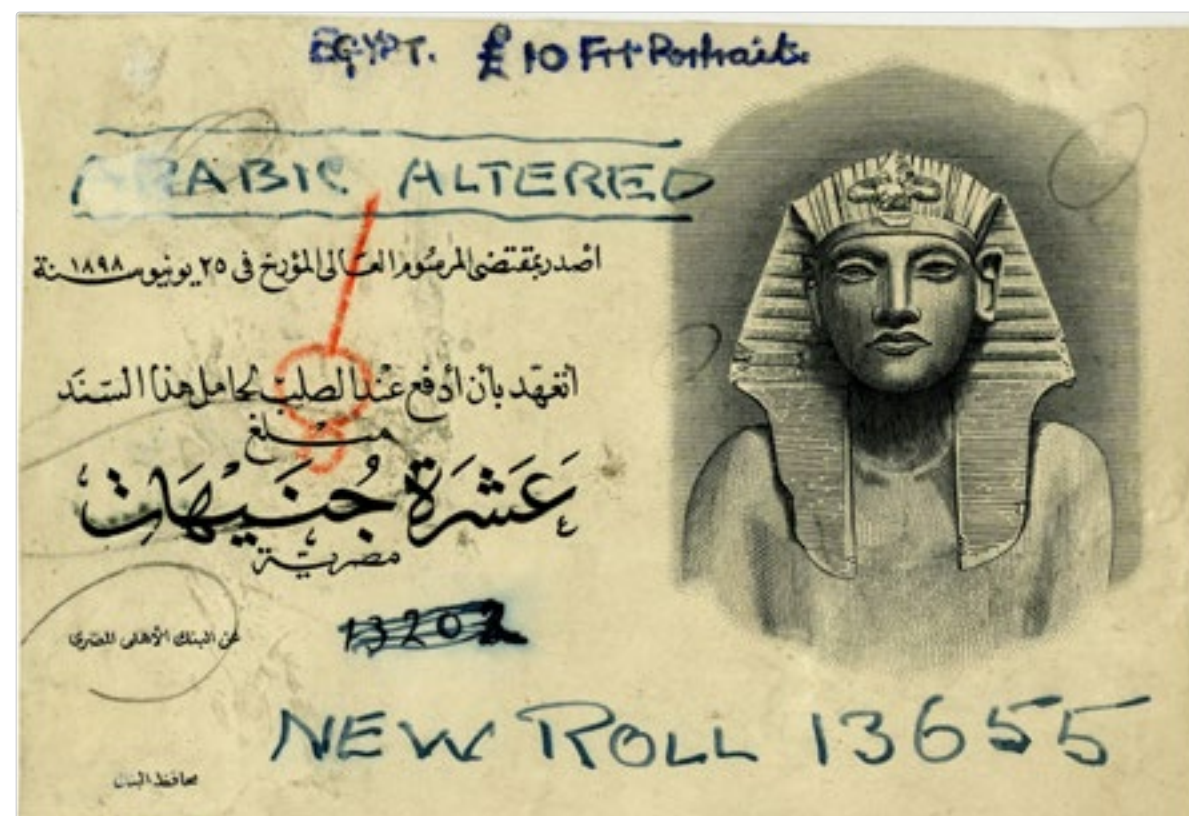 EGYPT. £10 Frt Portrait.
ARABIC ALTERED
اصدر بمقتضى المرسوم العالى المؤرخ فى ٢٥ يونيو سنة ١٨٩٨
أتعهد بأن أدفع عند الصلب لحامل هذا السند
مبلغ
عَشَرَة جُنَيْهَات
مصريّة
13202
عن البنك الأهلى المصرى
NEW ROLL 13655
محافظ البنك